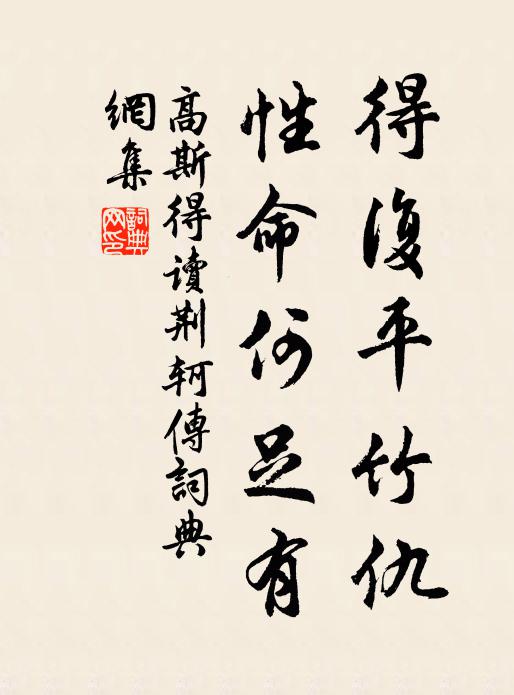 得復平竹仇
性命何足有
高斯得讀荆軻傳詞典
網集
詞典
网印